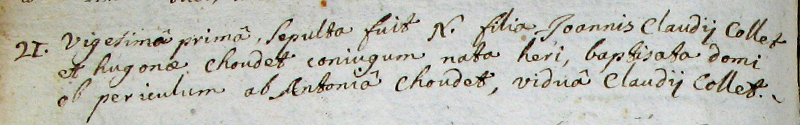 21. Vigesimâ primâ, sepulta fuit N. filia Joannis Claudij Collet
et hugonæ Choudet coniugum nata heri, baptisata domi
ob periculum ab Antoniâ Choudet, viduâ Claudij Collet.